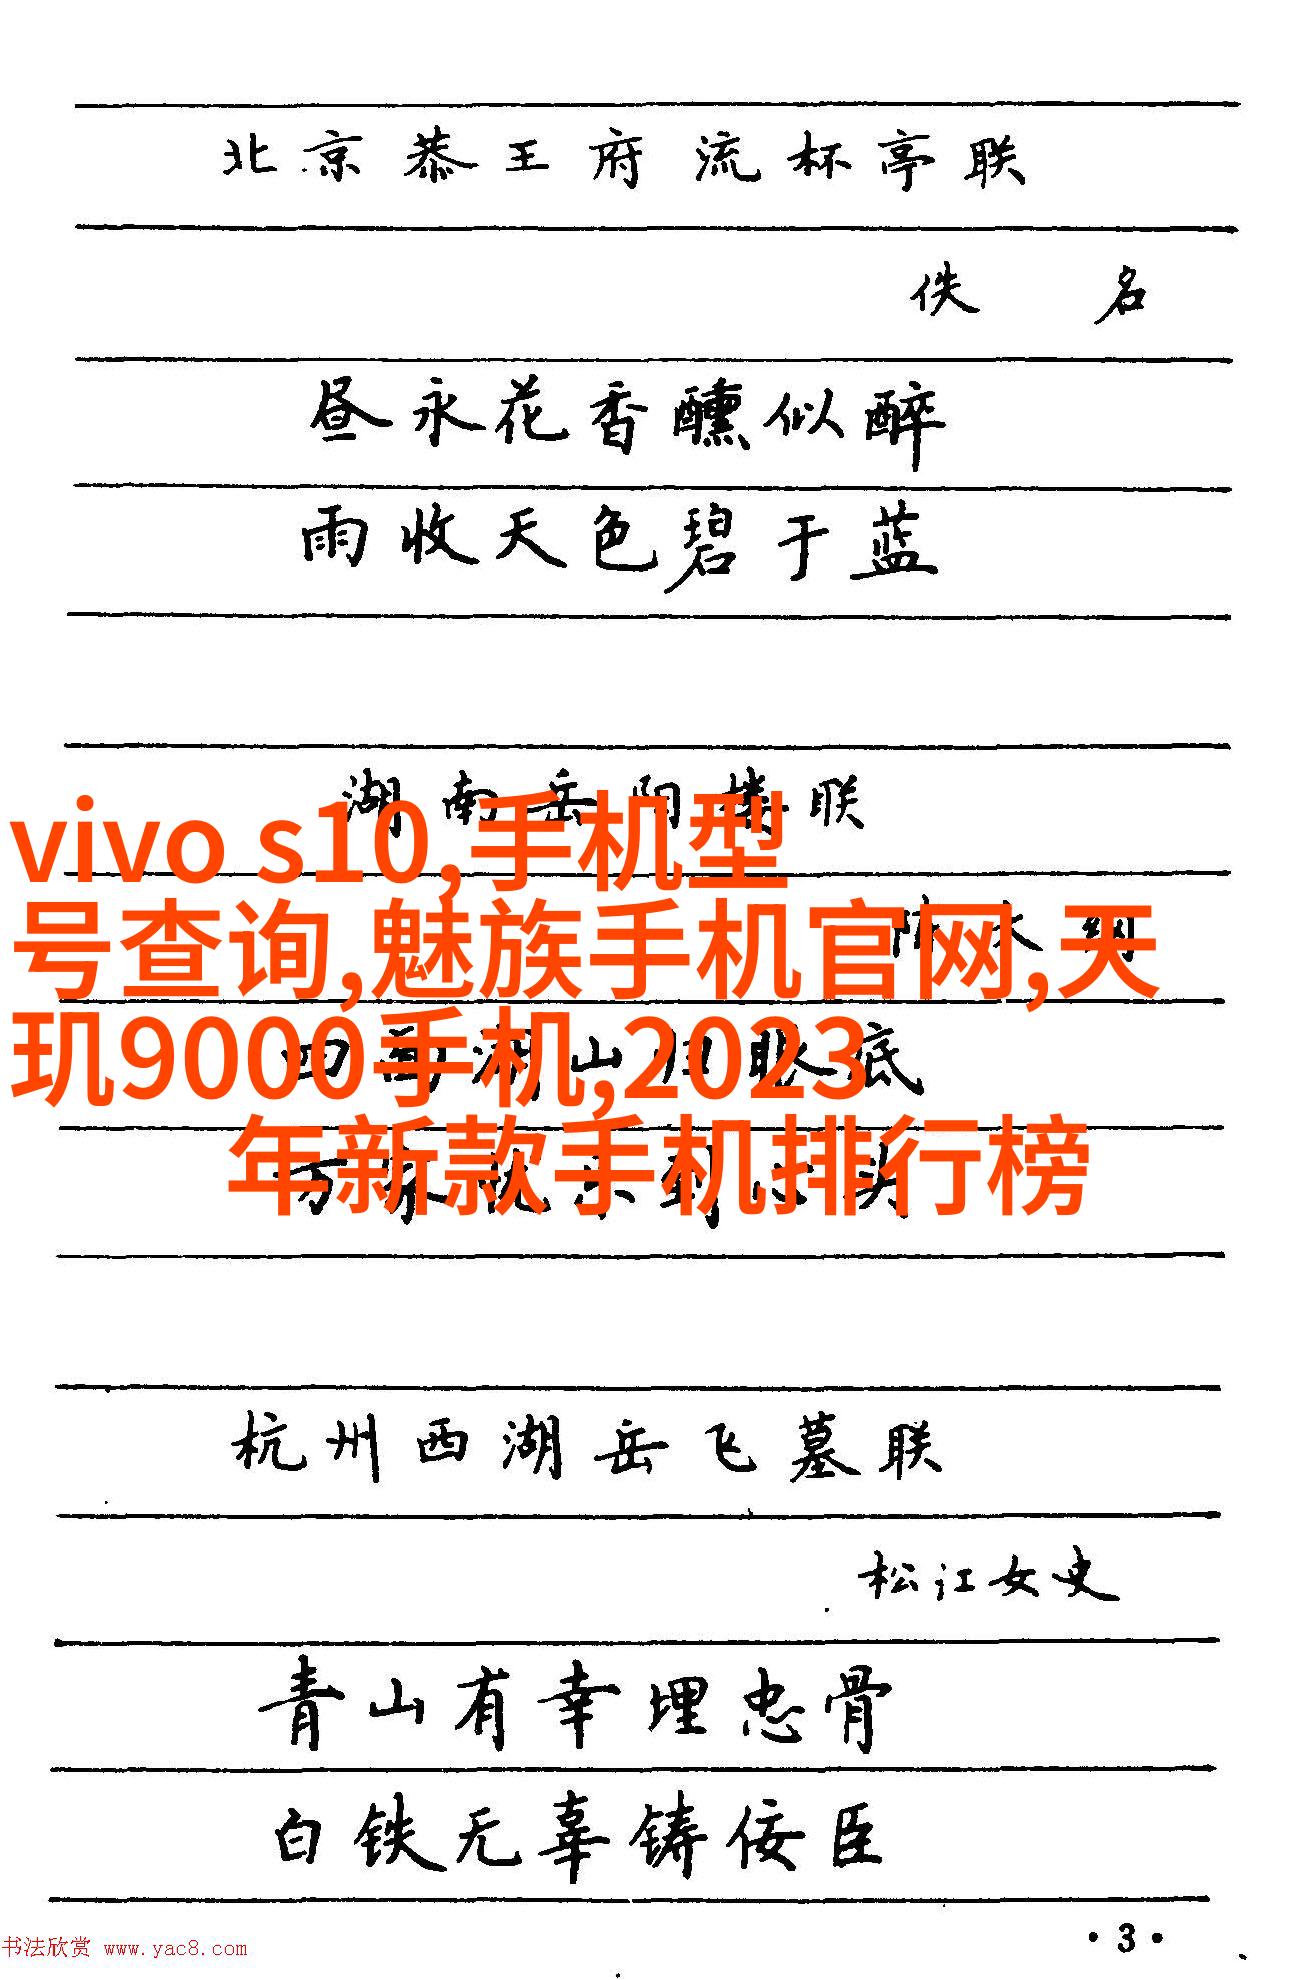 北京恭王府流杯亭联
佚名
昼永花香醺似醉
雨收天色碧于蓝
湖南岳阳楼联
vivo s10,手机型
号查询,魅族手机官网,天
玑9000手机,2023
年新款手机排行榜
四面湖山归眼底
杭州西湖岳飞墓联
松江女史
青山有幸埋忠骨
白铁无辜铸佞臣
·3·
书法欣赏 www.yac8.com